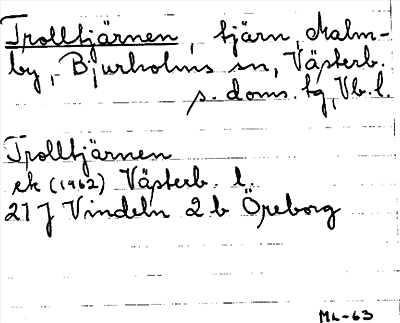 Trolltjärnen, tjärn, Malm-
by, Bjurholms sn, Västerb.
s. doms. tg, Vb. l.
Trolltjärnen
ek (1962) Västerb. l.
21 J Vindeln 2 b Öreborg
ML-63